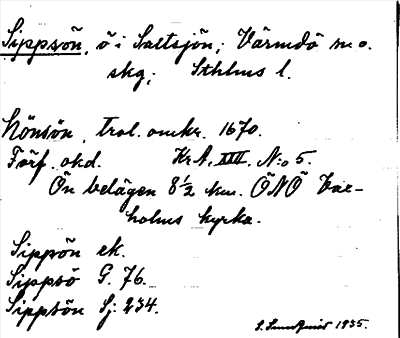 Sippsön, ö i Saltsjön; Värmdö sn o.
skg; Sthlms l.
Hönsön, trol. omkr. 1670.
Förf. okd. Kr A. XIII. N:o 5.
Ön belägen 8 1/2 km. ÖNÖ Vax-
holms kyrka.
Sippsön ek.
Sippsö G. 76.
Sippsön Sj. 234.
S. 1935.